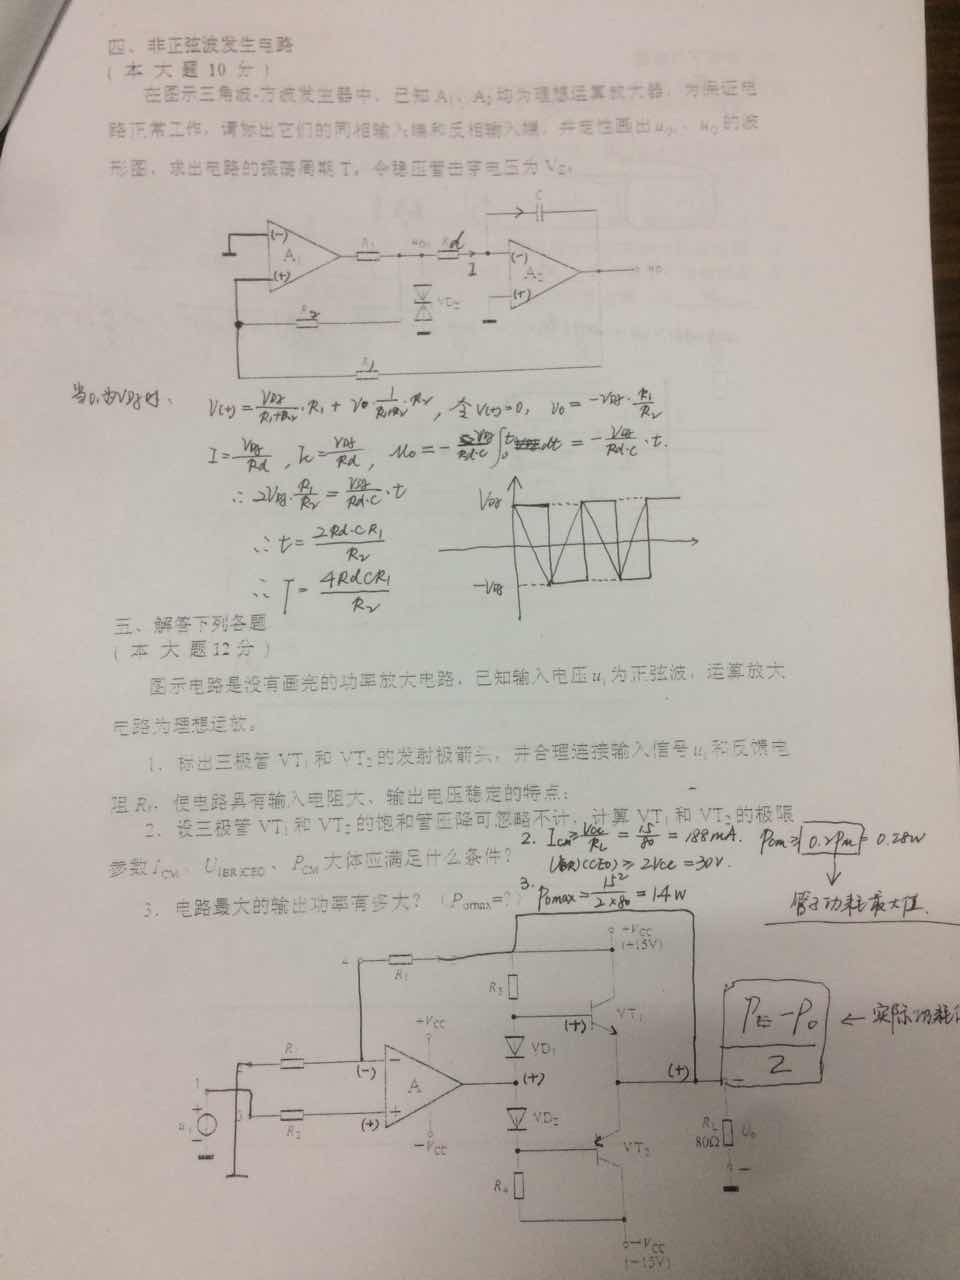 四、非正弦波发生电路
(本大题10分)
在图示三角波-方波发生器中，已知A₁、A₂均为理想运算放大器，为保证电
路正常工作，请标出它们的同相输入端和反相输入端，并定性画出u₀₁、u₀的波
形图，求出电路的振荡周期T。令稳压管击穿电压为V_Z。
C
(-)
A₁
(+)
R₃
u₀₁
Rd
I
(-)
A₂
(+)
VDz
R₂
R₁
V(+)=VDz/(R₁+R₂)·R₁+v₀·1/(R₁+R₂)·R₂, 令V(+)=0, v₀=-VDz·R₁/R₂
I=VDz/Rd, Ic=VDz/Rd, u₀=-VDz/(Rd·C)∫₀ᵗdt=-VDz/(Rd·C)·t.
∴2VDz·R₁/R₂=VDz/(Rd·C)·t
VDz
∴t=2Rd·CR₁/R₂
-VDz
∴T=4RdCR₁/R₂
五、解答下列各题
(本大题12分)
图示电路是没有画完的功率放大电路，已知输入电压uᵢ为正弦波，运算放大
电路为理想运放。
1．标出三极管VT₁和VT₂的发射极箭头，并合理连接输入信号uᵢ和反馈电
阻R_f，使电路具有输入电阻大、输出电压稳定的特点；
2．设三极管VT₁和VT₂的饱和管压降可忽略不计，计算VT₁和VT₂的极限
参数I_CM、U_(BR)CEO、P_CM大体应满足什么条件？
2. Icm≥Vcc/RL=15/80=188mA. Pcm≥0.2Pm=0.28W
U(BR)(CEO)≥2Vcc=30V.
3．电路最大的输出功率有多大？（Pomax=?）
3. Pomax=15²/(2×80)=14W
管子功耗最大值.
+VCC
(+15V)
4
R_f
R₃
VT₁
(+)
+VCC
VD₁
PE-P₀/2
←实际功耗
R₁
(-)
-
A
+
(+)
(+)
(+)
1
uᵢ
+
-
R₂
-VCC
VD₂
VT₂
RL
80Ω
U₀
-
R₄
-VCC
(-15V)